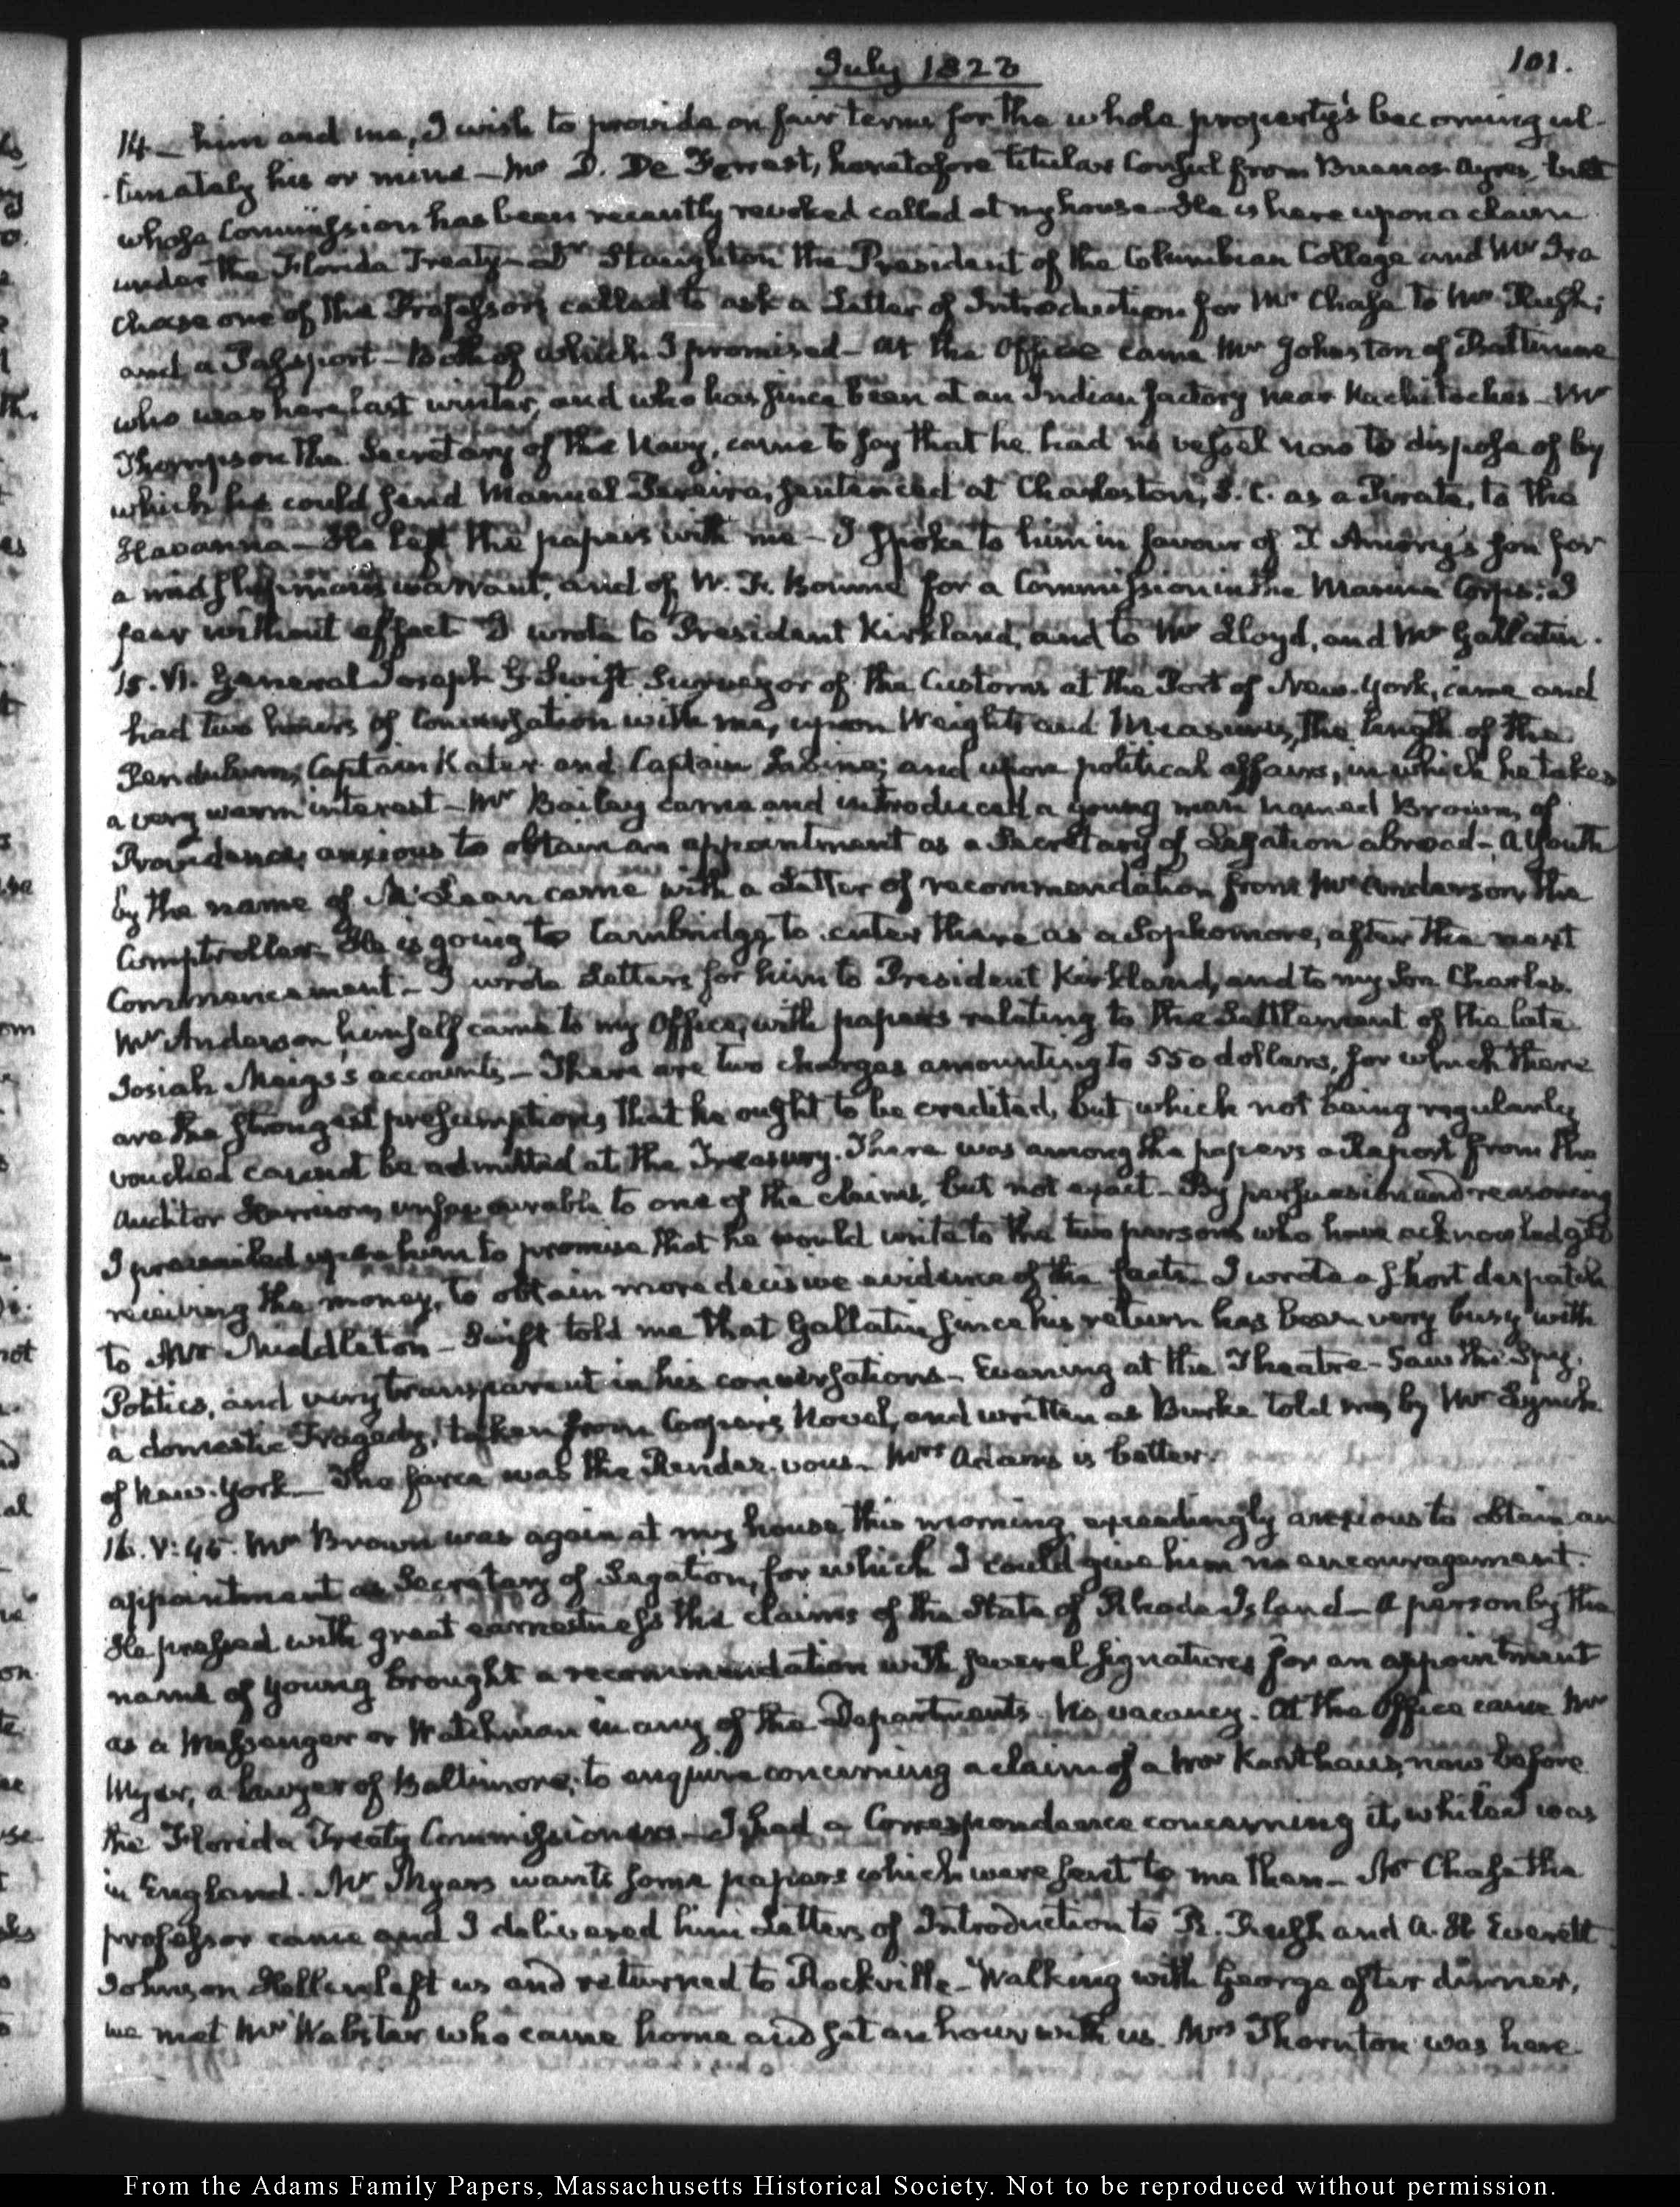 July 1823
101.
14 — him and me, I wish to provide on fair terms for the whole property's becoming ul-
timately his or mine — Mr D. De Forrest, heretofore titular Consul from Buenos Ayres, but
whose Commission has been recently revoked called at my house — He is here upon a claim
under the Florida Treaty — Dr Staughton the President of the Columbian College and Mr Ira
Chase one of the Professors called to ask a Letter of Introduction for Mr Chase to Mr Rush;
and a Passport — Both of which I promised — At the Office came Mr Johnston of Baltimore
who was here last winter, and who has since been at an Indian factory near Nachitoches — Mr
Thompson the Secretary of the Navy, came to say that he had no vessel now to dispose of by
which he could send Manuel Pereira, sentenced at Charleston, S. C. as a Pirate, to the
Havanna — He left the papers with me — I spoke to him in favour of I Amory's son for
a midshipman's warrant, and of W. F. for a Commission in the Marine Corps: I
fear without effect I wrote to President Kirkland, and to Mr Lloyd, and Mr Gallatin.
15. VI. General Joseph G Swift Surveyor of the Customs at the Port of New-York, came and
had two hours of Conversation with me, upon Weights and Measures, the length of the
Pendulum, Captain Kater and Captain Sabine; and upon political affairs, in which he takes
a very warm interest — Mr Bailey came and introduced a young man named Brown, of
Providence, anxious to obtain an appointment as a Secretary of Legation abroad — A Youth
by the name of McLean came with a Letter of recommendation from Mr Anderson, the
Comptroller He is going to Cambridge to enter there as a Sophomore, after the next
Commencement — I wrote Letters for him to President Kirkland, and to my Son Charles.
Mr Anderson himself came to my Office, with papers relating to the Settlement of the late
Josiah Meigs's accounts — There are two charges amounting to 550 dollars, for which there
are the strongest presumptions that he ought to be credited, but which not being regularly
vouched cannot be admitted at the Treasury. There was among the papers a Report from the
Auditor Harrison, unfavourable to one of the claims, but not exact — By persuasion and reasoning
I prevailed upon him to promise that he would write to the two persons who have acknowledged
receiving the money, to obtain more decisive evidence of the facts — I wrote a short despatch
to Mr Middleton — Swift told me that Gallatin since his return has been very busy with
Politics, and very transparent in his conversations — Evening at the Theatre — Saw the Spy,
a domestic Tragedy, taken from Cooper's Novel, and written as Burke told me, by Mr Lynch
of New-York — The farce was the Rendez-vous — Mrs Adams is better.
16. V: 45. Mr Brown was again at my house this morning exceedingly anxious to obtain an
appointment as Secretary of Legation, for which I could give him no encouragement.
He pressed with great earnestness the claims of the State of Rhode Island — A person by the
name of Young brought a recommendation with several signatures for an appointment
as a Messenger or Watchman in any of the Departments. No vacancy. At the Office came Mr
Myer, a Lawyer of Baltimore, to enquire concerning a claim of a Mr Karthaus, now before
the Florida Treaty Commissioners — I had a Correspondence concerning it, while I was
in England. Mr Myers wants some papers which were sent to me then — Mr Chase the
professor came and I delivered him Letters of Introduction to R. Rush and A. H Everett
Johnson Hellen left us and returned to Rockville — Walking with George after dinner,
we met Mr Webster who came home and sat an hour with us. Mrs Thornton was here
From the Adams Family Papers, Massachusetts Historical Society. Not to be reproduced without permission.